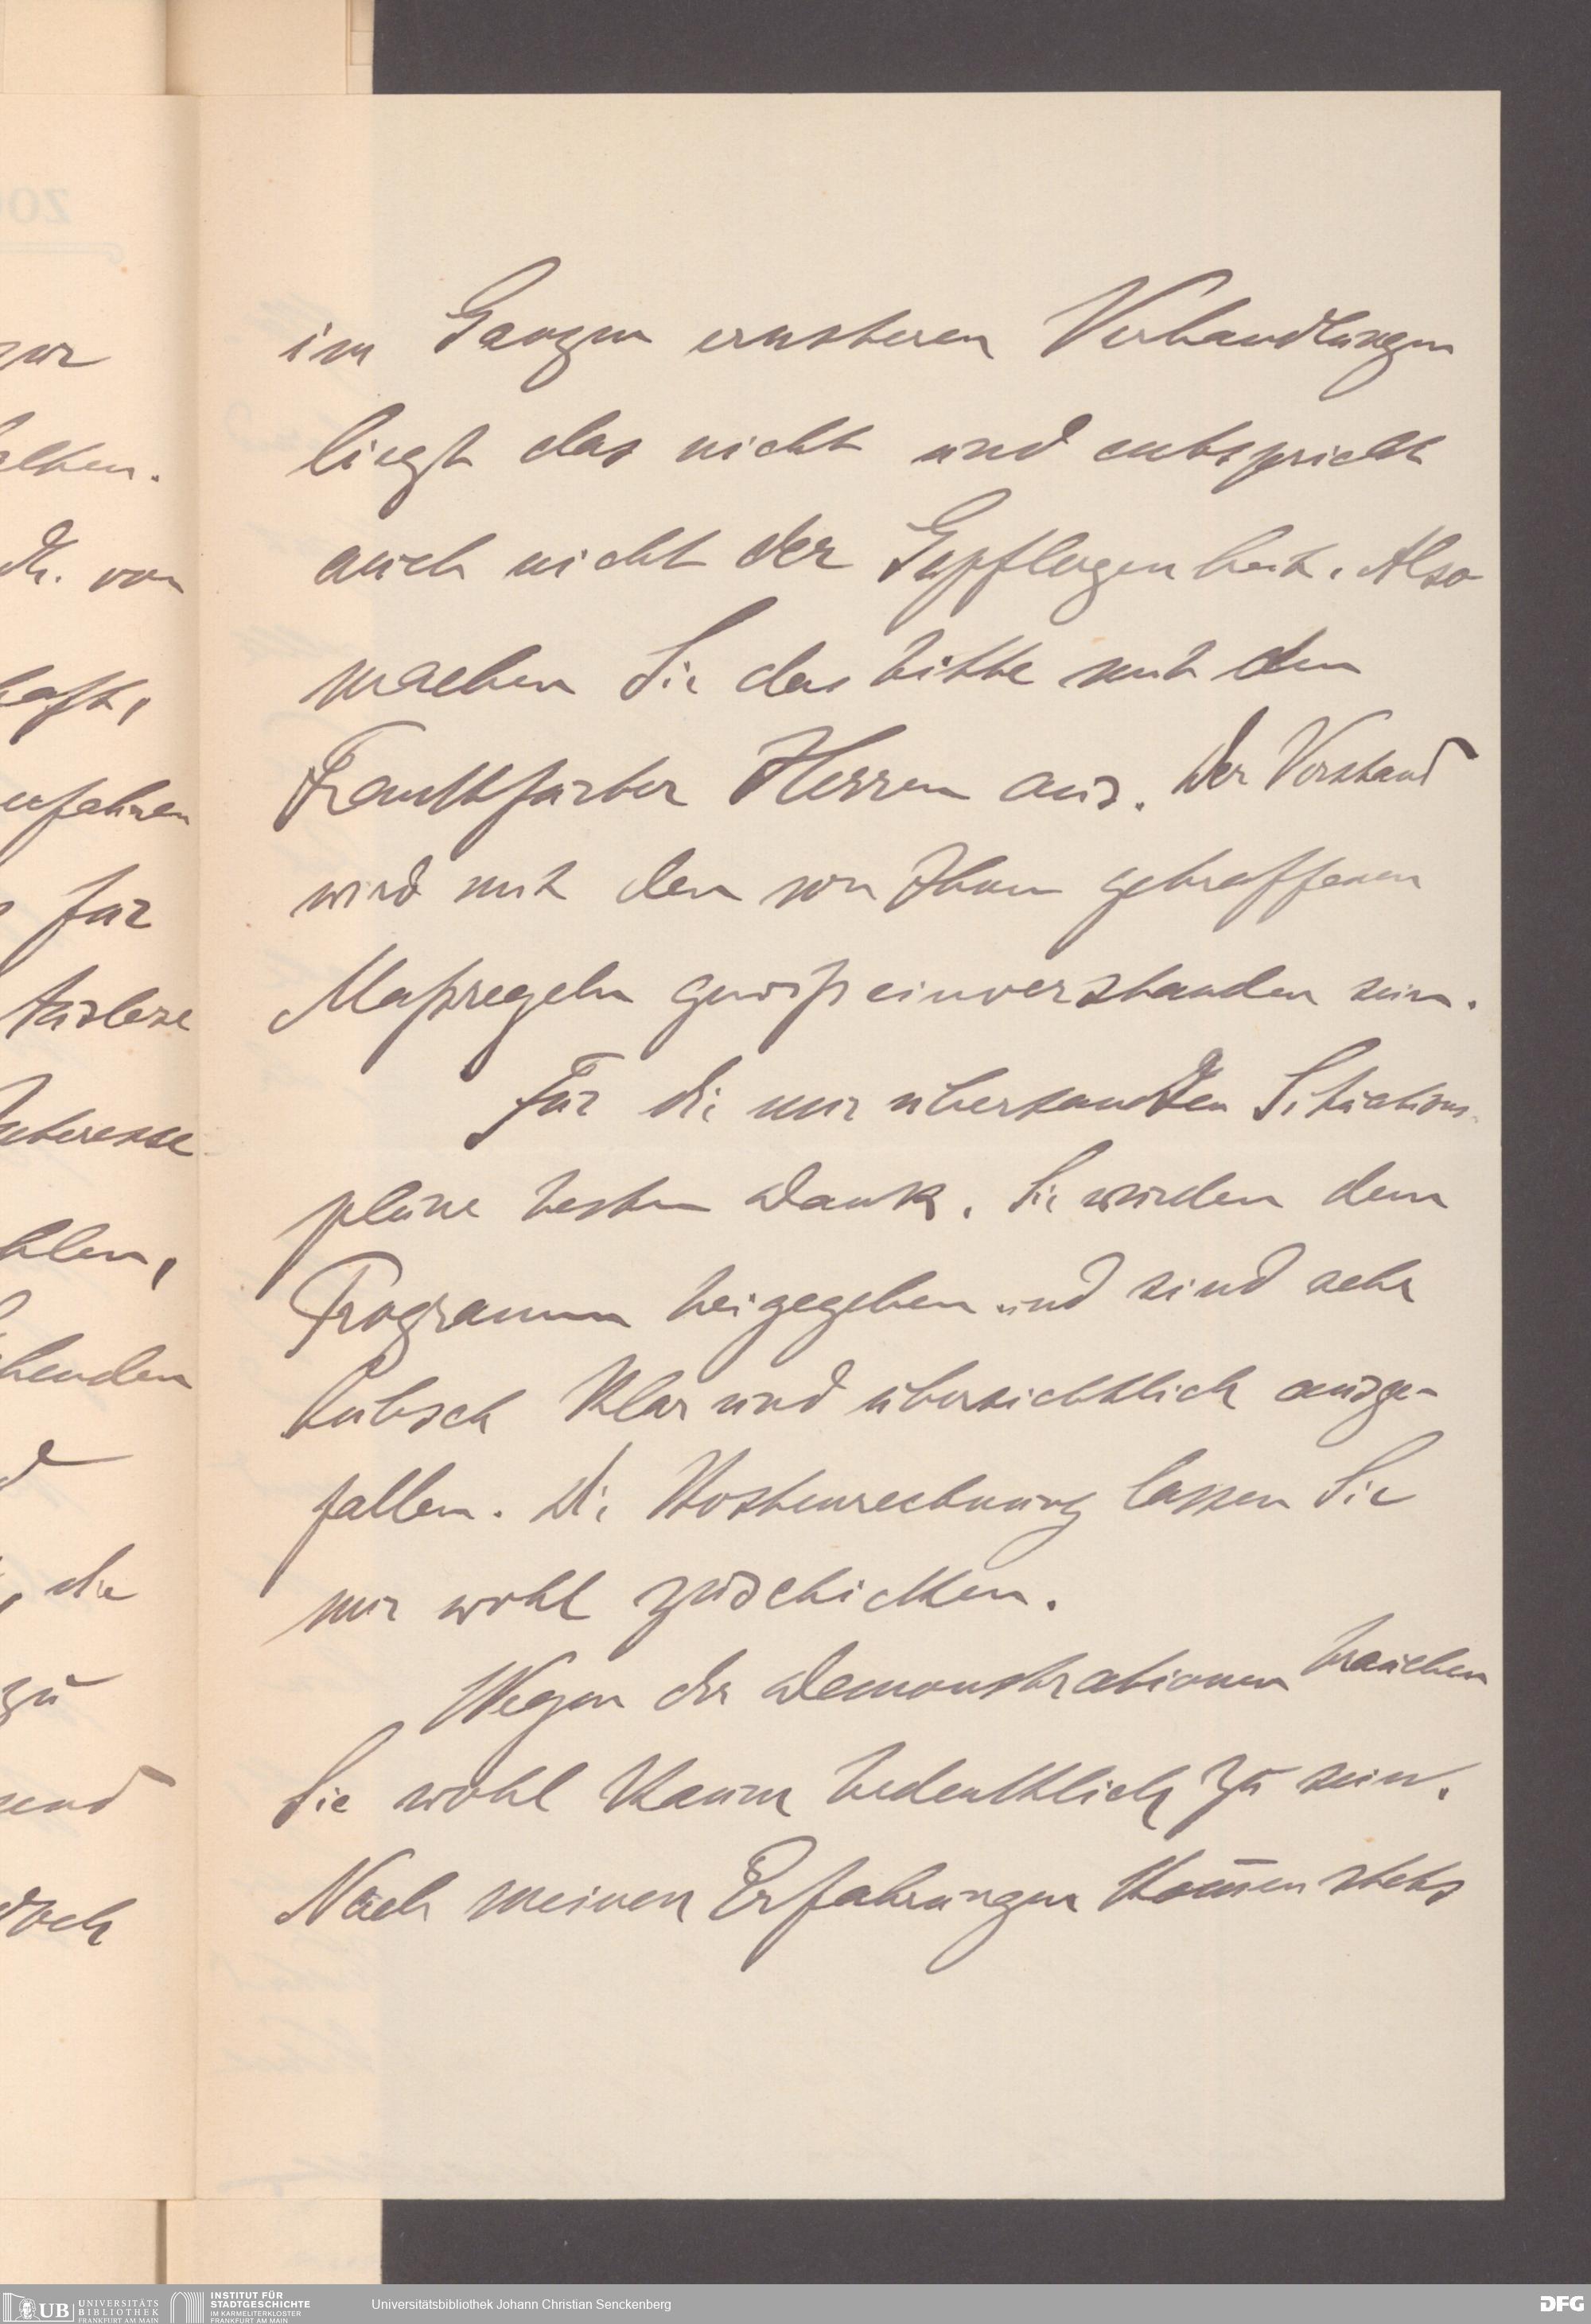 zoo
zur
alten.
Dr. von
haft,
erfahren
für
Auslese
Interesse
hlen,
henden
die
zu
und
doch
im Ganzen ernsteren Verhandlungen
liegt das nicht und entspricht
auch nicht der Gepflogenheit. Also
machen Sie das bitte mit den
Frankfurter Herren aus. Der Vorstand
wird mit den von Ihnen getroffenen
Maßregeln gewiß einverstanden sein.
Für die mir übersandten Situations-
pläne besten Dank. Sie würden dem
Programm beigegeben und sind sehr
hübsch klar und übersichtlich ausge-
fallen. Die Kostenrechnung lassen Sie
mir wohl zuschicken.
Wegen der Demonstrationen brauchen
Sie wohl kaum bedenklich zu sein.
Nach meinen Erfahrungen kom̄en stets
UB UNIVERSITÄTS
BIBLIOTHEK
FRANKFURT AM MAIN
INSTITUT FÜR
STADTGESCHICHTE
IM KARMELITERKLOSTER
FRANKFURT AM MAIN
Universitätsbibliothek Johann Christian Senckenberg
DFG